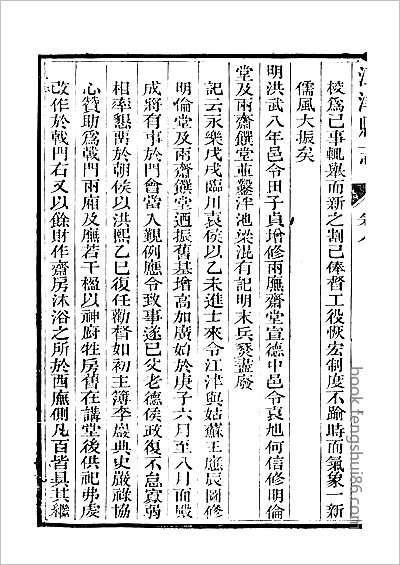 江津縣志 卷八
校為己事輒舉而新之割己俸督工役恢宏制度不踰時而氣象一新
儒風大振矣
明洪武八年邑令田子貞增修兩廡齋堂宣德中邑令袁旭何信修明倫
堂及兩齋饌堂並鑿泮池梁混有記明末兵燹盡廢
記云永樂戊戌臨川袁侯以乙未進士來令江津與姑蘇王應辰圖修
明倫堂及兩齋饌堂迺振舊基增高加廣始於庚子六月至八月而殿
成將有事於門會當入覲例應令致事遂已父老德侯政復不怠哀朝
相率懇閣於朝侯以洪熙乙巳復任勸督如初主簿李嚴典史嚴祿協
心贊助為戟門兩廡及廡若干楹以神廚牲房舊在講堂後供祀弗虔
改作於戟門右又以餘財作齋房沐浴之所於西廡側凡百皆具其繼
book.fengshui86.com